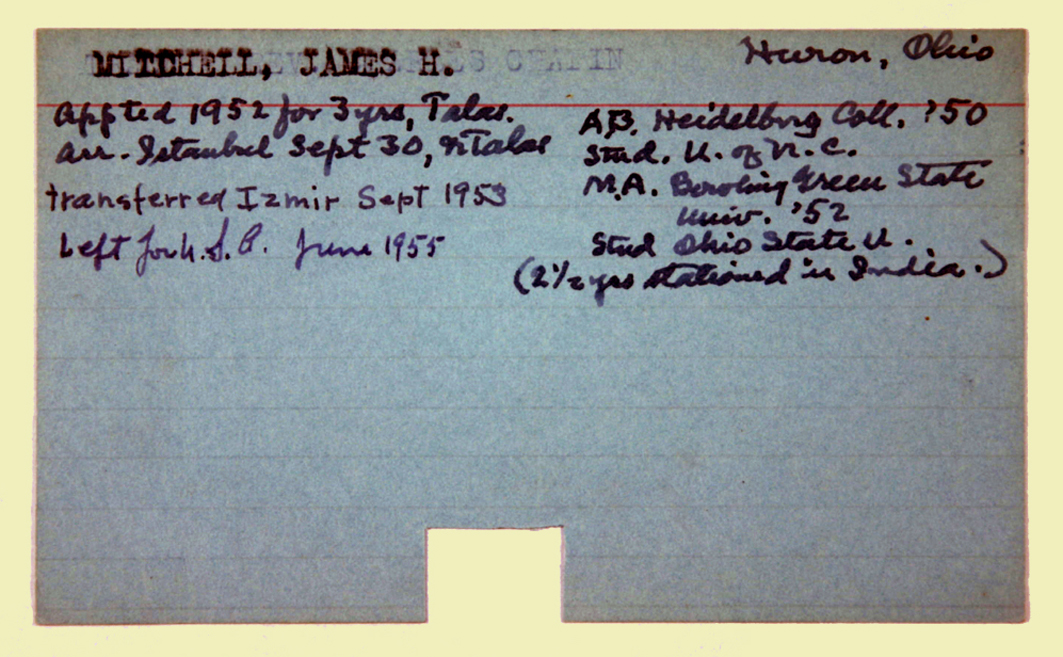 MITCHELL, JAMES H.
Huron, Ohio
Appted 1952 for 3 yrs, Talas.
Arr. Istanbul Sept 30, Talas
transferred Izmir Sept 1953
Left for U.S.A. June 1955
A.B. Heidelberg Coll. '50
Stud. U. of N.C.
M.A. Bowling Green State
Univ. '52
Stud Ohio State U.
(2 1/2 yrs stationed in India.)